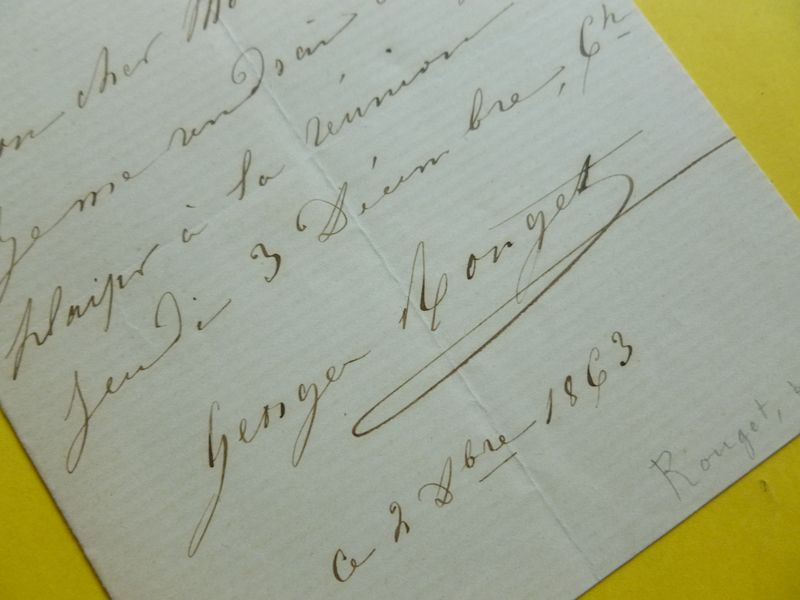 on cher Mo
Je me rendrai a
plaisir à la réunion
Jeudi 3 Décembre, Ch
Georges Rouget
ce 2 Xbre 1863
Rouget,